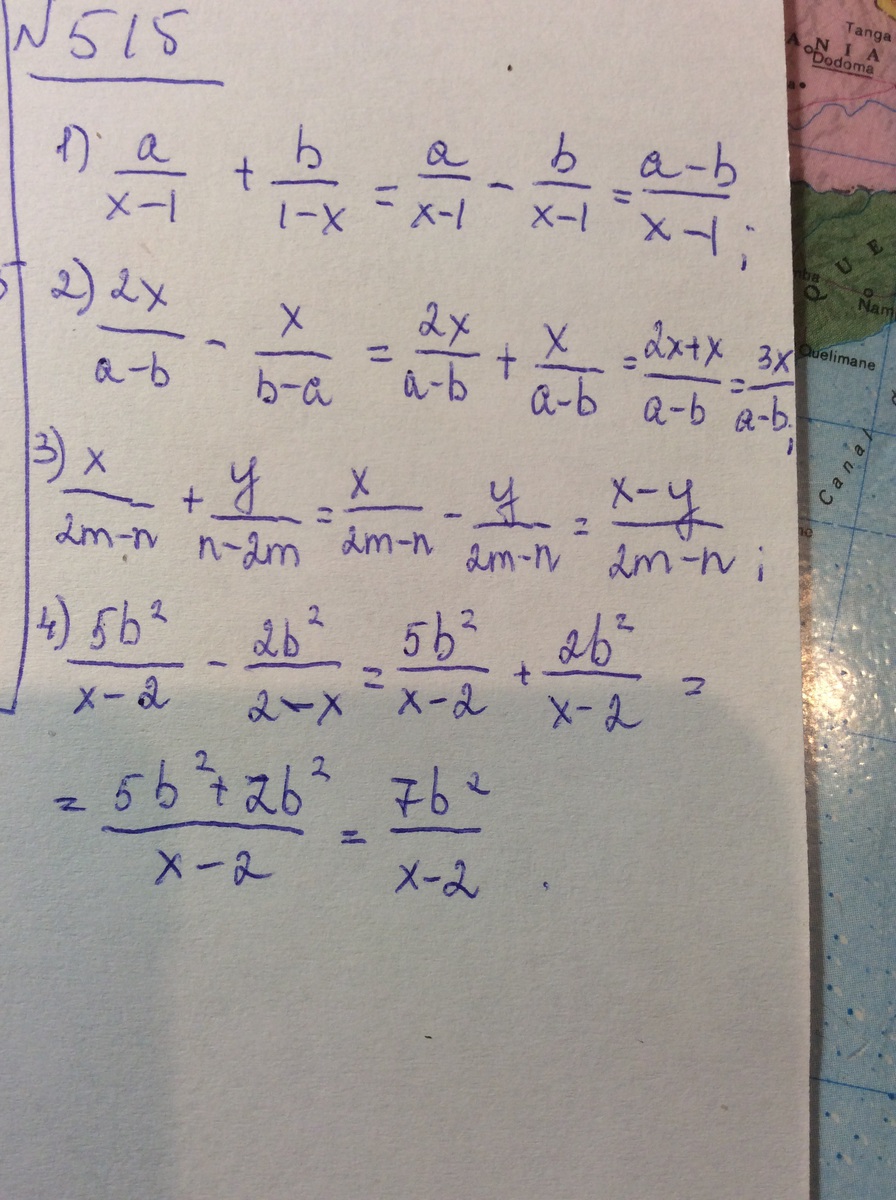 № 515
1) a/(x-1) + b/(1-x) = a/(x-1) - b/(x-1) = (a-b)/(x-1);
2) 2x/(a-b) - x/(b-a) = 2x/(a-b) + x/(a-b) = (2x+x)/(a-b) = 3x/(a-b);
3) x/(2m-n) + y/(n-2m) = x/(2m-n) - y/(2m-n) = (x-y)/(2m-n);
4) 5b²/(x-2) - 2b²/(2-x) = 5b²/(x-2) + 2b²/(x-2) =
= (5b²+2b²)/(x-2) = 7b²/(x-2).
Tanga
ANIA
Dodoma
QUE
Nam
Quelimane
Canal